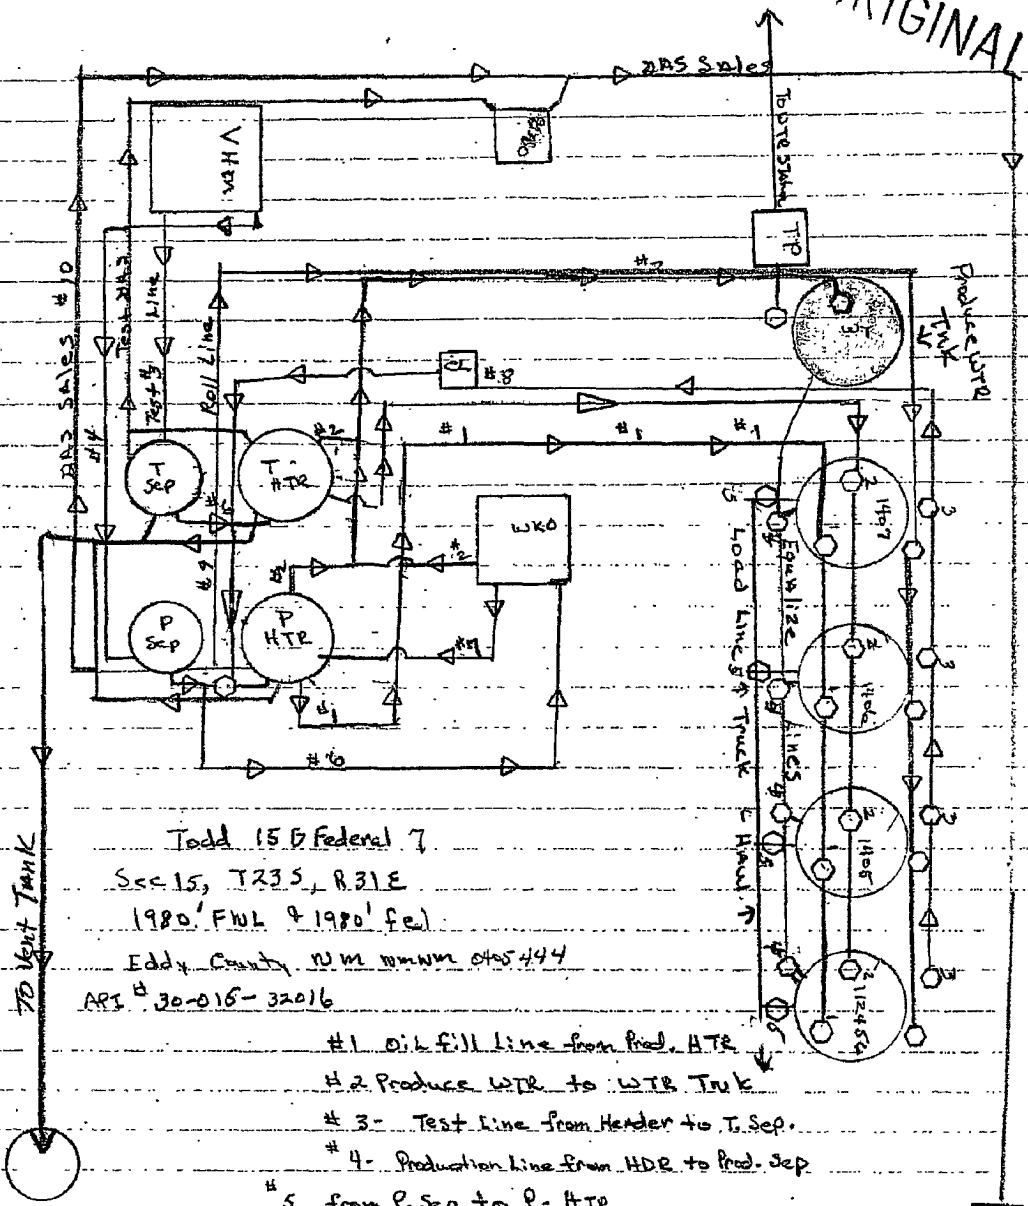 ORIGINAL
GAS Sales
To WTR Station
V HDR
TP
Produce WTR
TNK
GAS Sales #10
Test GAS
Test #3 Line
Roll Line
#4
#8
#2
#1
#1
#1
T
Sep
T
HTR
#5
#9
WKO
#2
#2
#7
P
Sep
P
HTR
#1
#6
1407
1406
1405
112454
Equalize Lines
Load Line #5 ↑ Truck
Haul ↑
TO Vent Tank
Todd 15 G Federal 7
Sec 15, T23S, R31E
1980' FNL & 1980' fel
Eddy County NM nmnm 0405444
API # 30-015-32016
#1 Oil fill Line from Prod. HTR
#2 Produce WTR to WTR Tnk
#3- Test Line from Header to T. Sep.
#4- Production Line from HDR to Prod. Sep
#5 from P. Sep to P- HTR